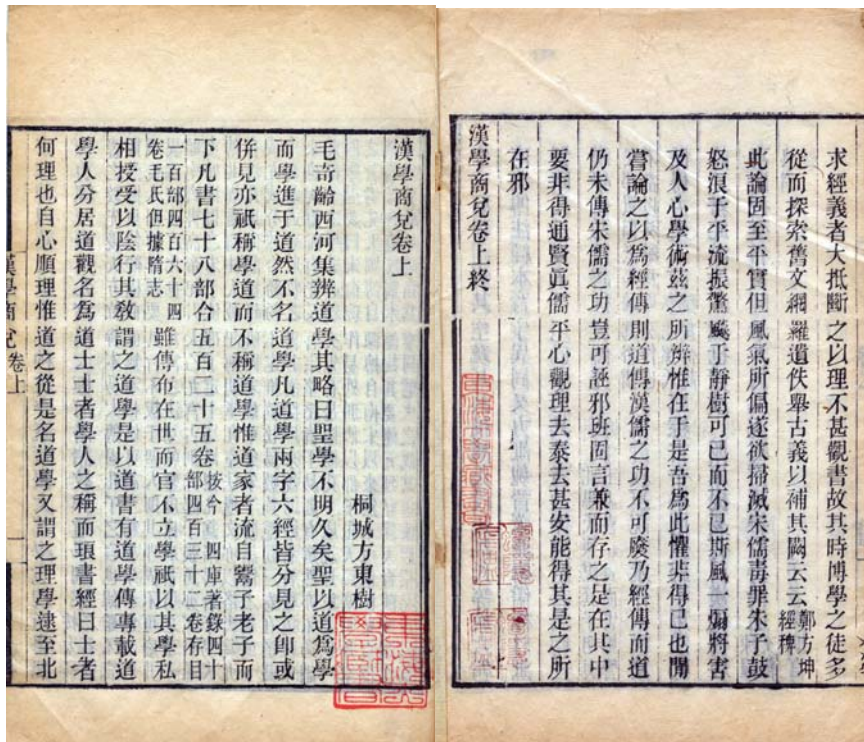 求經義者大抵斷之以理不甚觀書故其時博學之徒多
從而探索舊文網羅遺佚舉古義以補其闕云云鄭方坤
經稗
此論固至平實但風氣所偏遂欲掃滅宋儒毒罪朱子鼓
怒浪于平流振驚飈于靜樹可已而不已斯風一煽將害
及人心學術玆之所辨惟在于是吾爲此懼非得已也閒
嘗論之以爲經傳則道傳漢儒之功不可廢乃經傳而道
仍未傳宋儒之功豈可誣邪班固言兼而存之是在其中
要非得通賢眞儒平心觀理去泰去甚安能得其是之所
在邪
漢學商兌卷上終
漢學商兌卷上
桐城方東樹
毛奇齡西河集辨道學其略曰聖學不明久矣聖以道爲學
而學進于道然不名道學凡道學兩字六經皆分見之卽或
併見亦祇稱學道而不稱道學惟道家者流自鬻子老子而
下凡書七十八部合五百二十五卷按今四庫著錄四十
部四百三十二卷存目
一百部四百六十四
卷毛氏但據隋志雖傳布在世而官不立學祇以其學私
相授受以陰行其敎謂之道學是以道書有道學傳專載道
學人分居道觀名爲道士士者學人之稱而琅書經曰士者
何理也自心順理惟道之從是名道學又謂之理學逮至北
漢學商兌卷上